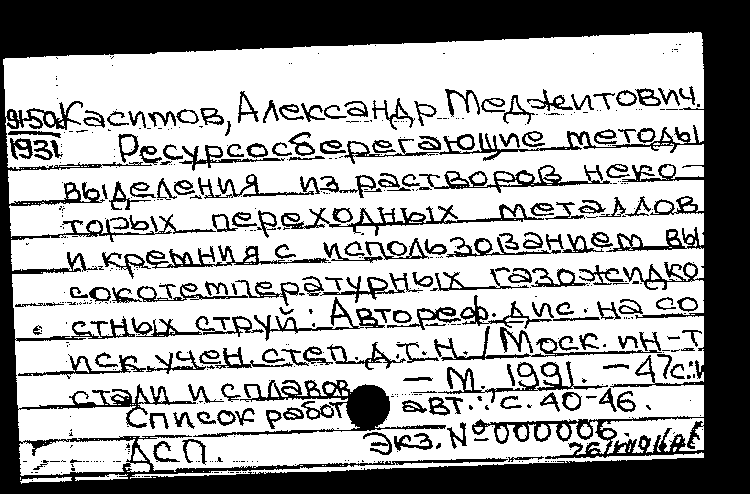 91-50к Касимов, Александр Меджитович.
1931 Ресурсосберегающие методы
выделения из растворов неко-
торых переходных металлов
и кремния с использованием вы
сокотемпературных газожидко-
стных струй: Автореф. дис. на со
иск. учен. степ. д.т.н. / Моск. ин-т
стали и сплавов. — М. 1991. — 47с.:и
Список работ авт.: с. 40-46.
ДСП. Экз. № 000006.